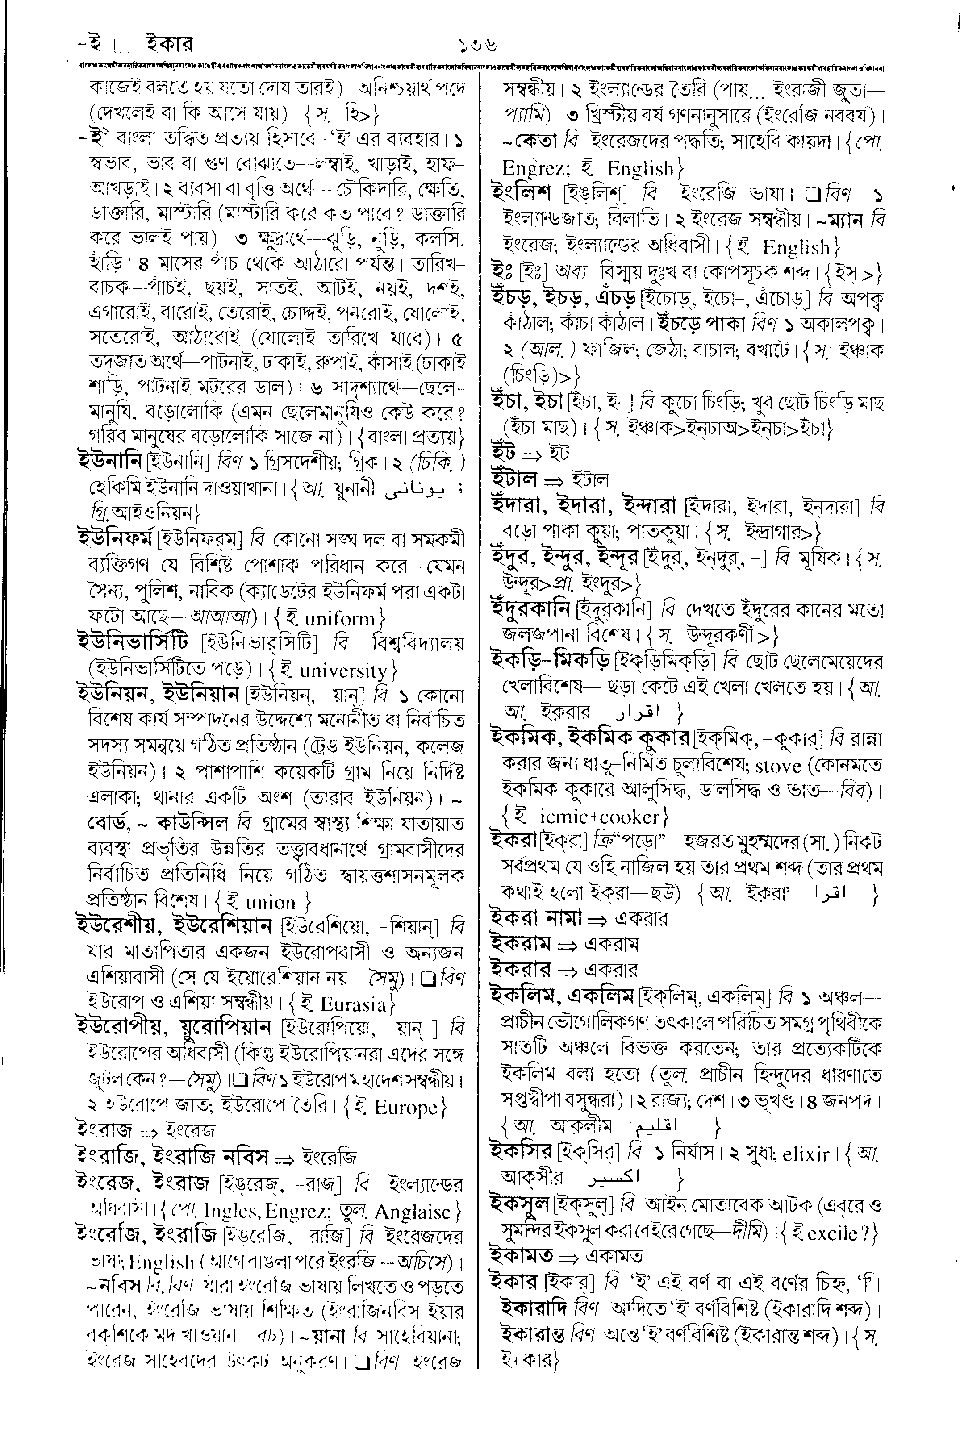 -ই ।... ইকার
১৩৬
কাজেই বলতে হয় যতো দোষ তারই) অনিশ্চয়ার্থ পদে
(দেখলেই বা কি আসে যায়) {স. হি>}
-ই² বাংলা তদ্ধিত প্রত্যয় হিসাবে 'ই' এর ব্যবহার। ১
স্বভাব, ভাব বা গুণ বোঝাতে—লম্বাই, খাড়াই, হাফ-
আখড়াই। ২ ব্যবসা বা বৃত্তি অর্থে—চৌকিদারি, ক্ষেতি,
ডাক্তারি, মাস্টারি (মাস্টারি করে কত পাবে? ডাক্তারি
করে ভালই পায়) ৩ ক্ষুদ্রার্থে—ঝুড়ি, নুড়ি, কলসি,
হাঁড়ি। ৪ মাসের পাঁচ থেকে আঠারো পর্যন্ত। তারিখ-
বাচক—পাঁচই, ছয়ই, সাতই, আটই, নয়ই, দশই,
এগারোই, বারোই, তেরোই, চোদ্দই, পনরোই, ষোলোই,
সতেরোই, আঠারোই (ষোলোই তারিখে যাবে)। ৫
তদজাত অর্থে—পাটনাই, ঢাকাই, রুপাই, কাঁসাই (ঢাকাই
শাড়ি, পাটনাই মটরের ডাল)। ৬ সাদৃশ্যার্থে—ছেলে-
মানুষি, বড়োলোকি (এমন ছেলেমানুষিও কেউ করে?
গরিব মানুষের বড়োলোকি সাজে না)। {বাংলা প্রত্যয়}
ইউনানি [ইউনানি] বিণ ১ গ্রিসদেশীয়; গ্রিক। ২ (চিকি.)
হেকিমি ইউনানি দাওয়াখানা। {আ. য়ুনানী يونانى ;
গ্রি. আইওনিয়ন}
ইউনিফর্ম [ইউনিফর্‌ম] বি কোনো সঙ্ঘ দল বা সমকর্মী
ব্যক্তিগণ যে বিশিষ্ট পোশাক পরিধান করে যেমন
সৈন্য, পুলিশ, নাবিক (ক্যাডেটের ইউনিফর্ম পরা একটা
ফটো আছে—আআআ)। {ই. uniform}
ইউনিভার্সিটি [ইউনিভার্‌সিটি] বি বিশ্ববিদ্যালয়
(ইউনিভার্সিটিতে পড়ে)। {ই. university}
ইউনিয়ন, ইউনিয়ান [ইউনিয়ন, য়ান্] বি ১ কোনো
বিশেষ কার্য সম্পাদনের উদ্দেশ্যে মনোনীত বা নির্বাচিত
সদস্য সমন্বয়ে গঠিত প্রতিষ্ঠান (ট্রেড ইউনিয়ন, কলেজ
ইউনিয়ন)। ২ পাশাপাশি কয়েকটি গ্রাম নিয়ে নির্দিষ্ট
এলাকা; থানার একটি অংশ (তারাব ইউনিয়ন)। ~
বোর্ড, ~ কাউন্সিল বি গ্রামের স্বাস্থ্য শিক্ষা যাতায়াত
ব্যবস্থা প্রভৃতির উন্নতির তত্ত্বাবধানার্থে গ্রামবাসীদের
নির্বাচিত প্রতিনিধি নিয়ে গঠিত স্বায়ত্তশাসনমূলক
প্রতিষ্ঠান বিশেষ। {ই. union }
ইউরেশীয়, ইউরেশিয়ান [ইউরেশিয়ো, -শিয়ান্] বি
যার মাতাপিতার একজন ইউরোপবাসী ও অন্যজন
এশিয়াবাসী (সে যে ইয়োরেশিয়ান নয় সৈমু)। ❏ বিণ
ইউরোপ ও এশিয়া সম্বন্ধীয়। {ই. Eurasia}
ইউরোপীয়, য়ুরোপিয়ান [ইউরোপিয়ো, য়ান্ ] বি
ইউরোপের অধিবাসী (কিন্তু ইউরোপিয়নরা এদের সঙ্গে
জুটল কেন?—সৈমু)। ❏ বিণ ১ ইউরোপ মহাদেশ সম্বন্ধীয়।
২ ইউরোপে জাত; ইউরোপে তৈরি। {ই. Europe}
ইংরাজ ⇒ ইংরেজ
ইংরাজি, ইংরাজি নবিস ⇒ ইংরেজি
ইংরেজ, ইংরাজ [ইঙ্‌রেজ্, -রাজ্] বি ইংল্যান্ডের
অধিবাসী। {পো. Ingles, Engrez; তুল. Anglaise}
ইংরেজি, ইংরাজি [ইঙ্‌রেজি, রাজি] বি ইংরেজদের
ভাষা; English (আগে বাঙলা পরে ইংরজি—অচিসে)।
~নবিস বি, বিণ যারা ইংরেজি ভাষায় লিখতে ও পড়তে
পারেন, ইংরেজি ভাষায় শিক্ষিত (ইংরাজিনবিস ইয়ার
বকশিকে মদ খাওয়ান বচ)। ~য়ানা বি সাহেবিয়ানা;
ইংরেজ সাহেবদের উৎকট অনুকরণ। ❏ বিণ ইংরেজ
সম্বন্ধীয়। ২ ইংল্যান্ডের তৈরি (পায়... ইংরাজী জুতা—
প্যামি) ৩ খ্রিস্টীয় বর্ষ গণনানুসারে (ইংরেজি নববর্ষ)।
~কেতা বি ইংরেজদের পদ্ধতি; সাহেবি কায়দা। {পো.
Engrez; ই. English}
ইংলিশ [ইঙ্‌লিশ্] বি ইংরেজি ভাষা। ❏ বিণ ১
ইংল্যান্ডজাত; বিলাতি। ২ ইংরেজ সম্বন্ধীয়। ~ম্যান বি
ইংরেজ; ইংল্যান্ডের অধিবাসী। {ই. English}
ইঃ [ইঃ] অব্য বিস্ময় দুঃখ বা কোপসূচক শব্দ। {ইস্ >}
ইঁচড়, ইচড়, এঁচড় [ইঁচোড়্, ইচো-, এঁচোড়্] বি অপক্ব
কাঁঠাল; কাঁচা কাঁঠাল। ইঁচড়ে পাকা বিণ ১ অকালপক্ব।
২ (আল.) ফাজিল; জেঠা; বাচাল; বখাটে। {স. ইঞ্চাক
(চিংড়ি)>}
ইঁচা, ইচা [ইঁচা, ই-] বি কুচো চিংড়ি; খুব ছোট চিংড়ি মাছ
(ইঁচা মাছ)। {স. ইঞ্চাক>ইন্‌চাঅ>ইন্‌চা>ইঁচা}
ইঁট ⇒ ইট
ইঁটাল ⇒ ইটাল
ইঁদারা, ইদারা, ইন্দারা [ইঁদারা, ইদারা, ইন্‌দারা] বি
বড়ো পাকা কুয়া; পাতকুয়া। {স. ইন্দ্রাগার>}
ইঁদুর, ইন্দুর, ইন্দূর [ইঁদুর্, ইন্‌দুর্, -] বি মূষিক। {স.
উন্দুর>প্রা. ইংদুর>}
ইঁদুরকানি [ইঁদুর্‌কানি] বি দেখতে ইঁদুরের কানের মতো
জলজপানা বিশেষ। {স. উন্দূরকর্ণী >}
ইকড়ি-মিকড়ি [ইক্‌ড়িমিক্‌ড়ি] বি ছোট ছেলেমেয়েদের
খেলাবিশেষ— ছড়া কেটে এই খেলা খেলতে হয়। {আ.
আ. ইকরার اقرار }
ইকমিক, ইকমিক কুকার [ইক্‌মিক্, -কুকার্] বি রান্না
করার জন্য ধাতু-নির্মিত চুলাবিশেষ; stove (কোনমতে
ইকমিক কুকারে আলুসিদ্ধ, ডালসিদ্ধ ও ভাত—বিব)।
{ই icmic+cooker}
ইকরা [ইক্‌রা] ক্রি "পড়ো" হজরত মুহম্মদের (সা.) নিকট
সর্বপ্রথম যে ওহি নাজিল হয় তার প্রথম শব্দ (তার প্রথম
কথাই হলো ইকরা—ছউ) {আ. ইকরা اقرا }
ইকরা নামা ⇒ একরার
ইকরাম ⇒ একরাম
ইকরার ⇒ একরার
ইকলিম, একলিম [ইক্‌লিম্, একলিম্] বি ১ অঞ্চল—
প্রাচীন ভৌগোলিকগণ তৎকালে পরিচিত সমগ্র পৃথিবীকে
সাতটি অঞ্চলে বিভক্ত করতেন; তার প্রত্যেকটিকে
ইকলিম বলা হতো (তুল. প্রাচীন হিন্দুদের ধারণাতে
সপ্তদ্বীপা বসুন্ধরা)। ২ রাজ্য; দেশ। ৩ ভূখণ্ড। ৪ জনপদ।
{আ. আক়লীম اقليم }
ইকসির [ইক্‌সির্] বি ১ নির্যাস। ২ সুধা; elixir। {আ.
আকসীর اكسير }
ইকসুল [ইক্‌সুল্] বি আইন মোতাবেক আটক (এবরে ও
সুমন্দির ইকসুল করা বেইরে গেছে—দীমি)। {ই excile?}
ইকামত ⇒ একামত
ইকার [ইকার্] বি 'ই' এই বর্ণ বা এই বর্ণের চিহ্ন, 'ি'।
ইকারাদি বিণ আদিতে 'ই' বর্ণবিশিষ্ট (ইকারাদি শব্দ)।
ইকারান্ত বিণ অন্তে 'ই' বর্ণবিশিষ্ট (ইকারান্ত শব্দ)। {স.
ই+কার}